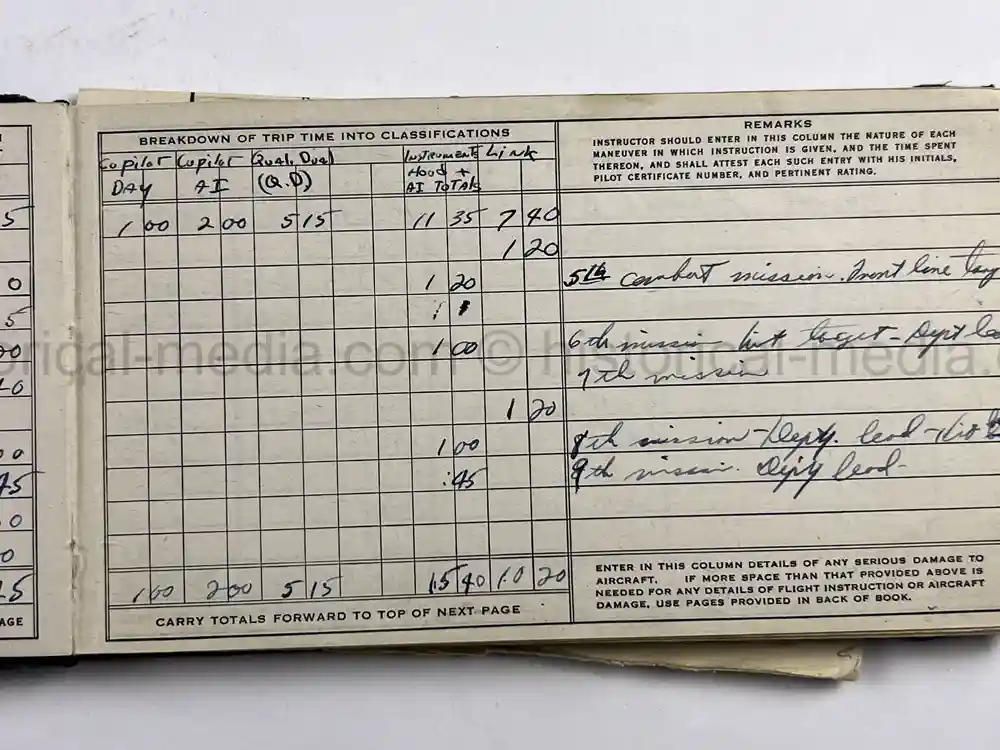 BREAKDOWN OF TRIP TIME INTO CLASSIFICATIONS
Copilot Copilot Qual. Dual Instrument Link
DAY AI (Q.D) Hood +
AI TOTALS
5 1 00 2 00 5 15 11 35 7 40
1 20
0 1 20 5th combat mission. Front line
5
00 1 00 6th mission - hit target - Dept
7th mission
1 20
00 1 00 8th mission - Depty. lead -
45 :45 9th mission. Dpty lead -
0
0
1 00 2 00 5 15 15 40 10 20
CARRY TOTALS FORWARD TO TOP OF NEXT PAGE
AGE
REMARKS
INSTRUCTOR SHOULD ENTER IN THIS COLUMN THE NATURE OF EACH
MANEUVER IN WHICH INSTRUCTION IS GIVEN, AND THE TIME SPENT
THEREON, AND SHALL ATTEST EACH SUCH ENTRY WITH HIS INITIALS,
PILOT CERTIFICATE NUMBER, AND PERTINENT RATING.
ENTER IN THIS COLUMN DETAILS OF ANY SERIOUS DAMAGE TO
AIRCRAFT. IF MORE SPACE THAN THAT PROVIDED ABOVE IS
NEEDED FOR ANY DETAILS OF FLIGHT INSTRUCTION OR AIRCRAFT
DAMAGE, USE PAGES PROVIDED IN BACK OF BOOK.
origal-media.com © historical-media.c